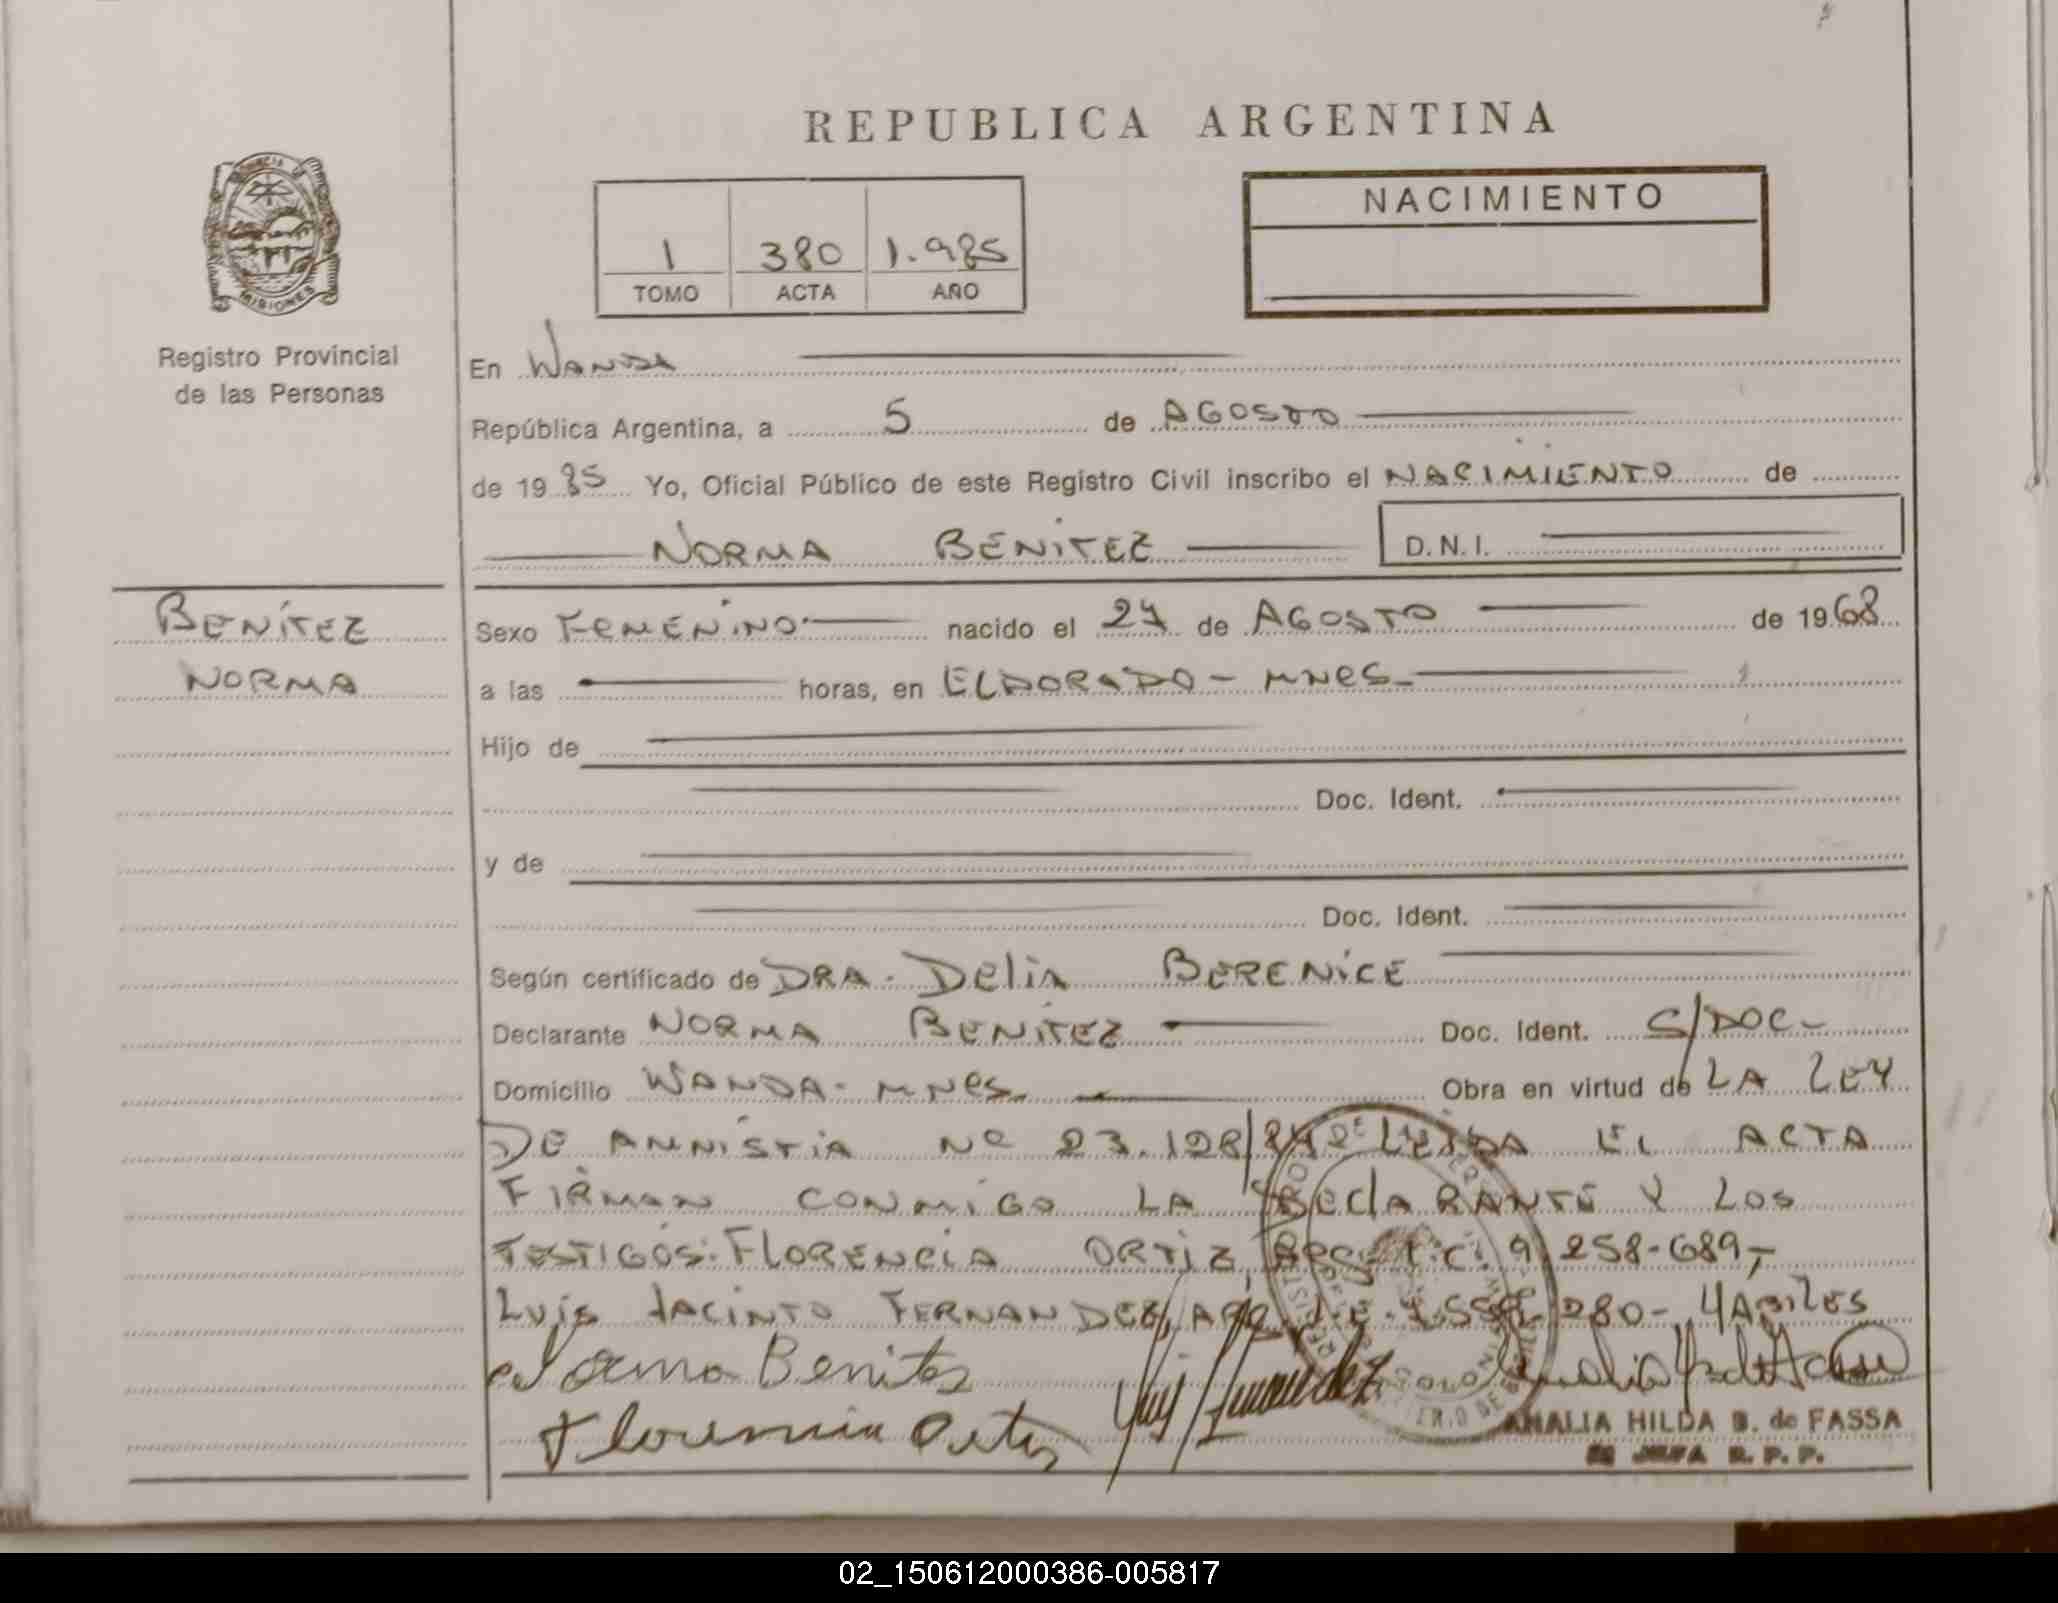 REPUBLICA ARGENTINA
PROVINCIA
MISIONES
Registro Provincial
de las Personas
1 380 1.985
TOMO ACTA AÑO
NACIMIENTO
En WANDA
República Argentina, a 5 de AGOSTO
de 1985 Yo, Oficial Público de este Registro Civil inscribo el NACIMIENTO de
NORMA BENITEZ D.N.I.
BENÍTEZ
NORMA
Sexo FEMENINO nacido el 24 de AGOSTO de 1968
a las horas, en ELDORADO - MNES.
Hijo de
Doc. Ident.
y de
Doc. Ident.
Según certificado de DRA. Delia BERENICE
Declarante NORMA BENITEZ Doc. Ident. S/DOC-
Domicilio WANDA - MNES. Obra en virtud de LA LEY
DE AMNISTIA Nº 23.128/84 LEIDA EL ACTA
FIRMAN CONMIGO LA DeclaRANTE Y LOS
TESTIGOS: FLORENCIA ORTIZ, ARG. 9.258-689,-
LUIS JACINTO FERNANDEZ, ARG. 280- HABILES
Norma Benites
Luis Fernandez
Florencia Ortiz
AMALIA HILDA B. de FASSA
JEFA R. P. P.
02_150612000386-005817